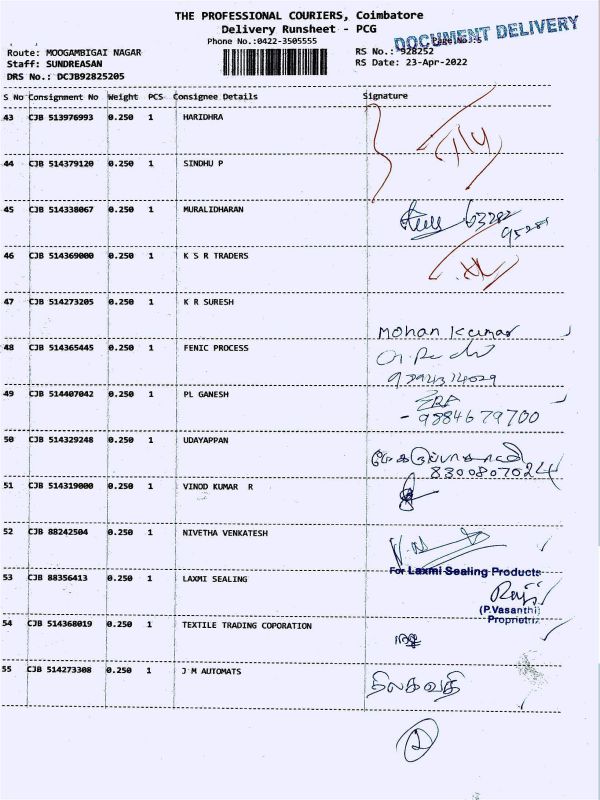 THE PROFESSIONAL COURIERS, Coimbatore
Delivery Runsheet - PCG
DOCUMENT DELIVERY
Phone No.:0422-3505555
Route: MOOGAMBIGAI NAGAR
RS No.: 928252
Staff: SUNDREASAN
RS Date: 23-Apr-2022
DRS No.: DCJB92825205
S No Consignment No Weight PCS Consignee Details Signature
43 CJB 513976993 0.250 1 HARIDHRA
44 CJB 514379120 0.250 1 SINDHU P
45 CJB 514338067 0.250 1 MURALIDHARAN
46 CJB 514369000 0.250 1 K S R TRADERS
47 CJB 514273205 0.250 1 K R SURESH
Mohan Kumar
48 CJB 514365445 0.250 1 FENIC PROCESS
49 CJB 514407042 0.250 1 PL GANESH
- 9884679700
50 CJB 514329248 0.250 1 UDAYAPPAN
8300807024
51 CJB 514319000 0.250 1 VINOD KUMAR R
52 CJB 88242504 0.250 1 NIVETHA VENKATESH
For Laxmi Sealing Products
53 CJB 88356413 0.250 1 LAXMI SEALING
(P.Vasanthi)
Proprietrix
54 CJB 514368019 0.250 1 TEXTILE TRADING COPORATION
55 CJB 514273308 0.250 1 J M AUTOMATS
திலகவதி
2